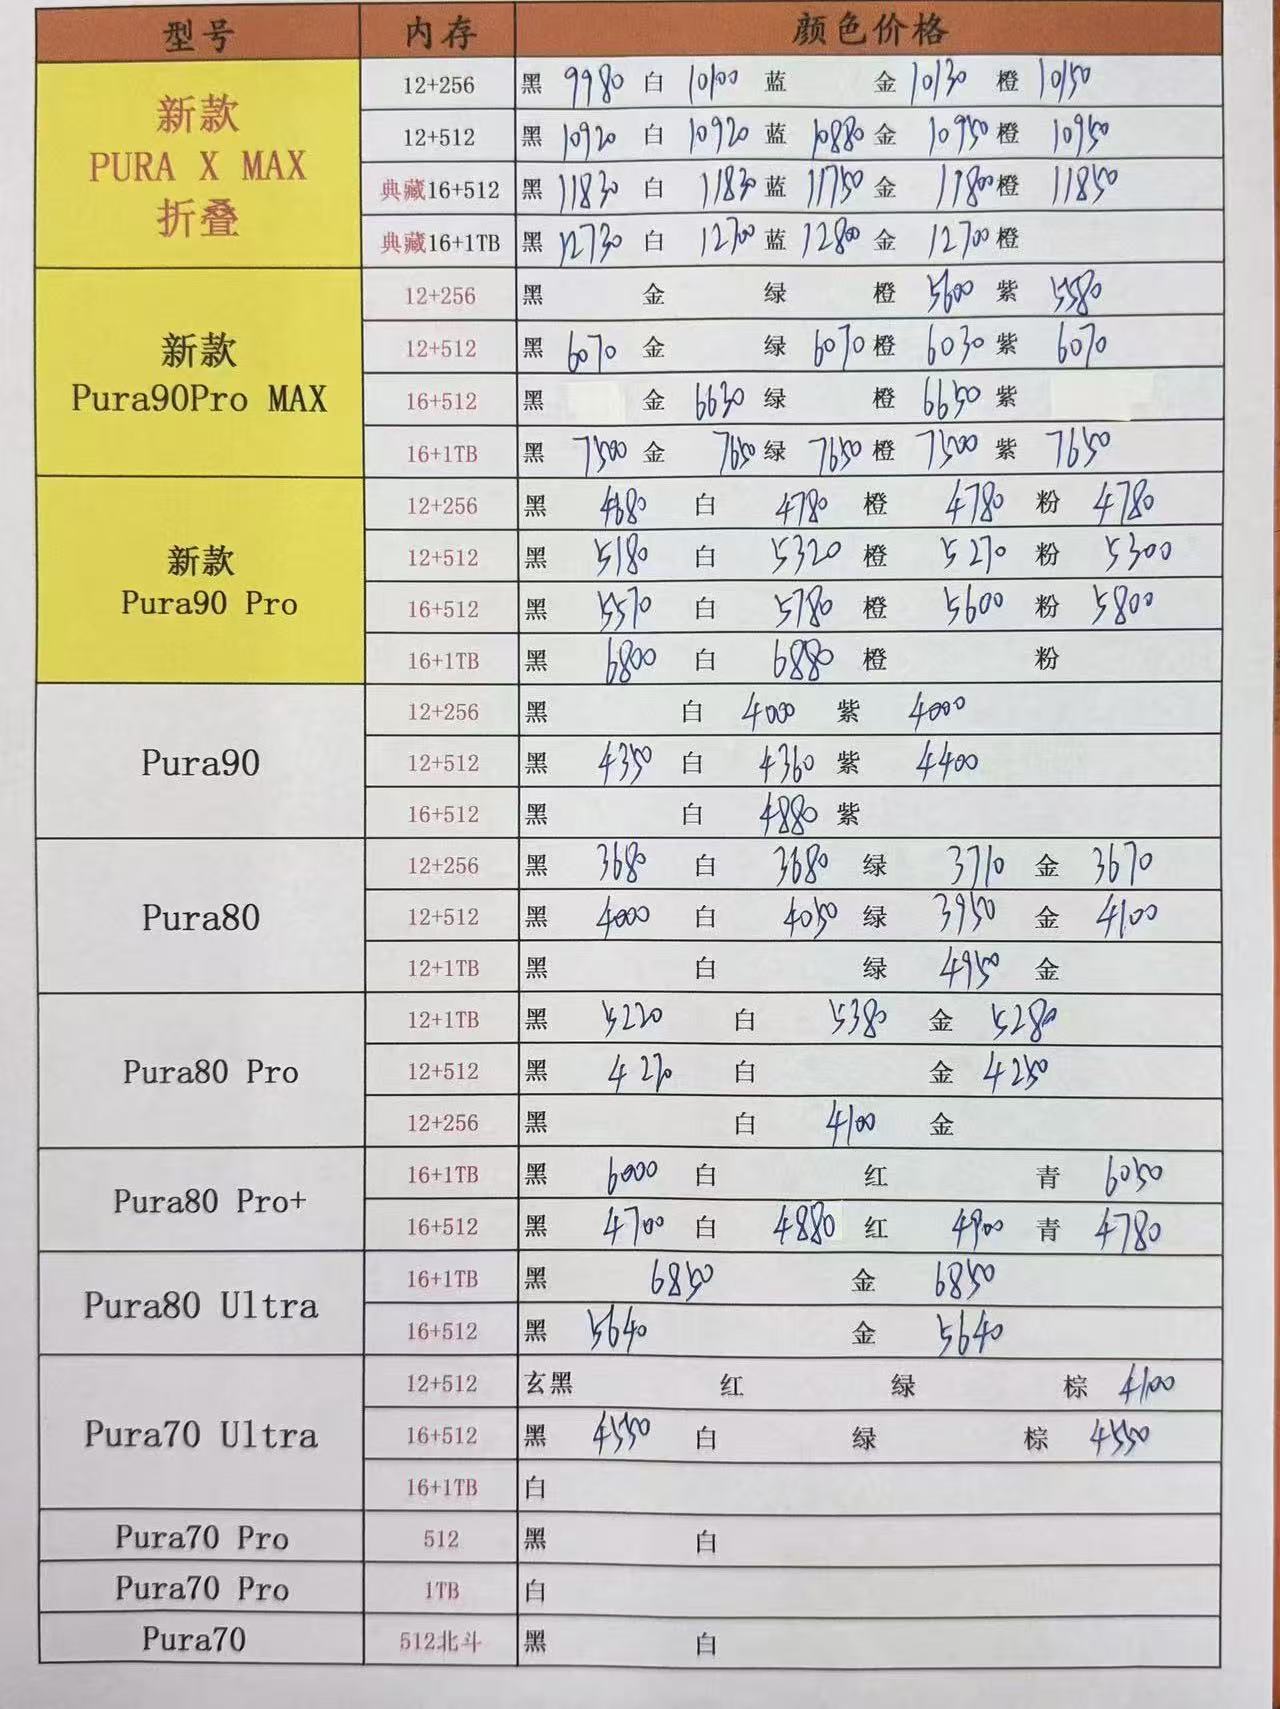 型号 内存 颜色价格
新款 PURA X MAX 折叠
12+256 黑 9980 白 10100 蓝 金 10130 橙 10150
12+512 黑 10920 白 10920 蓝 10880 金 10950 橙 10950
典藏16+512 黑 11830 白 11830 蓝 11750 金 11800 橙 11850
典藏16+1TB 黑 12730 白 12700 蓝 12800 金 12700 橙
新款 Pura90Pro MAX
12+256 黑 金 绿 橙 5600 紫 5580
12+512 黑 6070 金 绿 6070 橙 6030 紫 6070
16+512 黑 金 6630 绿 橙 6650 紫
16+1TB 黑 7500 金 7650 绿 7650 橙 7500 紫 7650
新款 Pura90 Pro
12+256 黑 4680 白 4780 橙 4780 粉 4780
12+512 黑 5180 白 5320 橙 5270 粉 5300
16+512 黑 5570 白 5780 橙 5600 粉 5800
16+1TB 黑 6800 白 6880 橙 粉
Pura90
12+256 黑 白 4000 紫 4000
12+512 黑 4350 白 4360 紫 4400
16+512 黑 白 4880 紫
Pura80
12+256 黑 3680 白 3680 绿 3710 金 3670
12+512 黑 4000 白 4050 绿 3950 金 4100
12+1TB 黑 白 绿 4950 金
Pura80 Pro
12+1TB 黑 5220 白 5380 金 5280
12+512 黑 4270 白 金 4250
12+256 黑 白 4100 金
Pura80 Pro+
16+1TB 黑 6000 白 红 青 6050
16+512 黑 4700 白 4880 红 4900 青 4780
Pura80 Ultra
16+1TB 黑 6850 金 6850
16+512 黑 5640 金 5640
Pura70 Ultra
12+512 玄黑 红 绿 棕 4100
16+512 黑 4550 白 绿 棕 4550
16+1TB 白
Pura70 Pro 512 黑 白
Pura70 Pro 1TB 白
Pura70 512北斗 黑 白